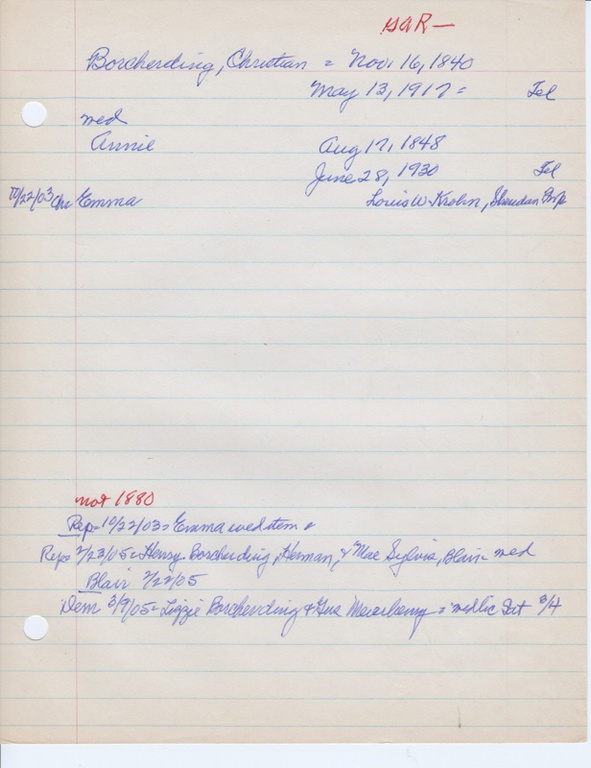 GAR—
Borcherding, Christian = Nov. 16, 1840
May 13, 1917 = Tel
wed
Annie Aug 17, 1848
June 28, 1930 Tel
10/22/03 Emma Louis W Krohn, Sheridan Twp
not 1880
Rep= 10/22/03= Emma wed item
Rep= 2/23/05= Henry Borcherding, Herman, & Mae Sylvis, Blair wed
Blair 2/22/05
Dem 3/9/05= Lizzie Borcherding & Gus = wed lic Sat 3/4